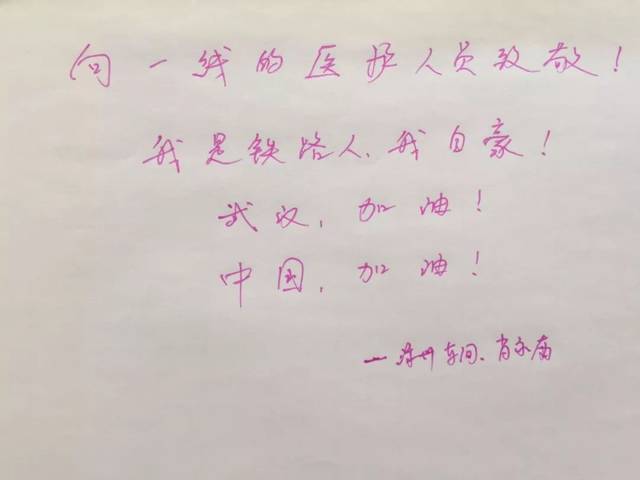 向一线的医护人员致敬!
我是铁路人、我自豪!
武汉,加油!
中国,加油!
车间、肖